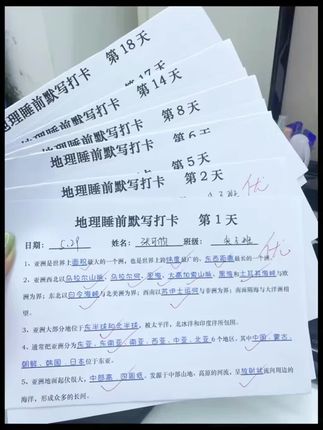 地理睡前默写打卡 第18天
第17天
地理睡前默写打卡 第14天
地理睡前默写打卡 第8天
地理睡前默写打卡 第6天
地理睡前默写打卡 第5天
地理睡前默写打卡 第2天
优
地理睡前默写打卡 第1天
日期: 5.29 姓名: 班级:
优
1、亚洲是世界上面积最大的一个洲,也是世界上跨纬度最广的、东西距离最长的一个洲。
2、亚洲西北以乌拉尔山脉、乌拉尔河、里海、大高加索山脉、黑海和土耳其海峡与欧
洲为界;东北以白令海峡与北美洲为界;西南以苏伊士运河与非洲为界;南面隔海与大洋洲相
望。
3、亚洲大部分地位于东半球和北半球,被太平洋,北冰洋和印度洋所包围。
4、通常把亚洲分为东亚、东南亚、南亚、西亚、中亚、北亚6个地区。其中中国、蒙古、
朝鲜、韩国、日本位于东亚。
5、亚洲地面起伏很大,中部高,四周低,发源于中部山地,高原的河流,呈放射状流向周边的
海洋,形成众多的长河。